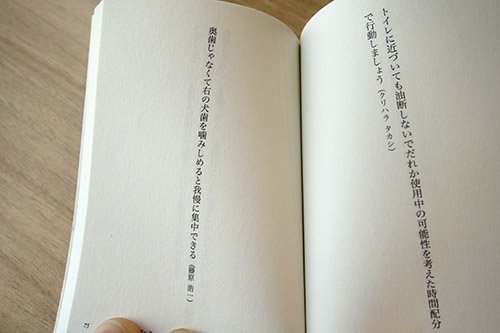 トイレに近づいても油断しないでだれか使用中の可能性を考えた時間配分
で行動しましょう（クリハラ タカシ）
奥歯じゃなくて右の犬歯を噛みしめると我慢に集中できる（藤原 浩一）
75